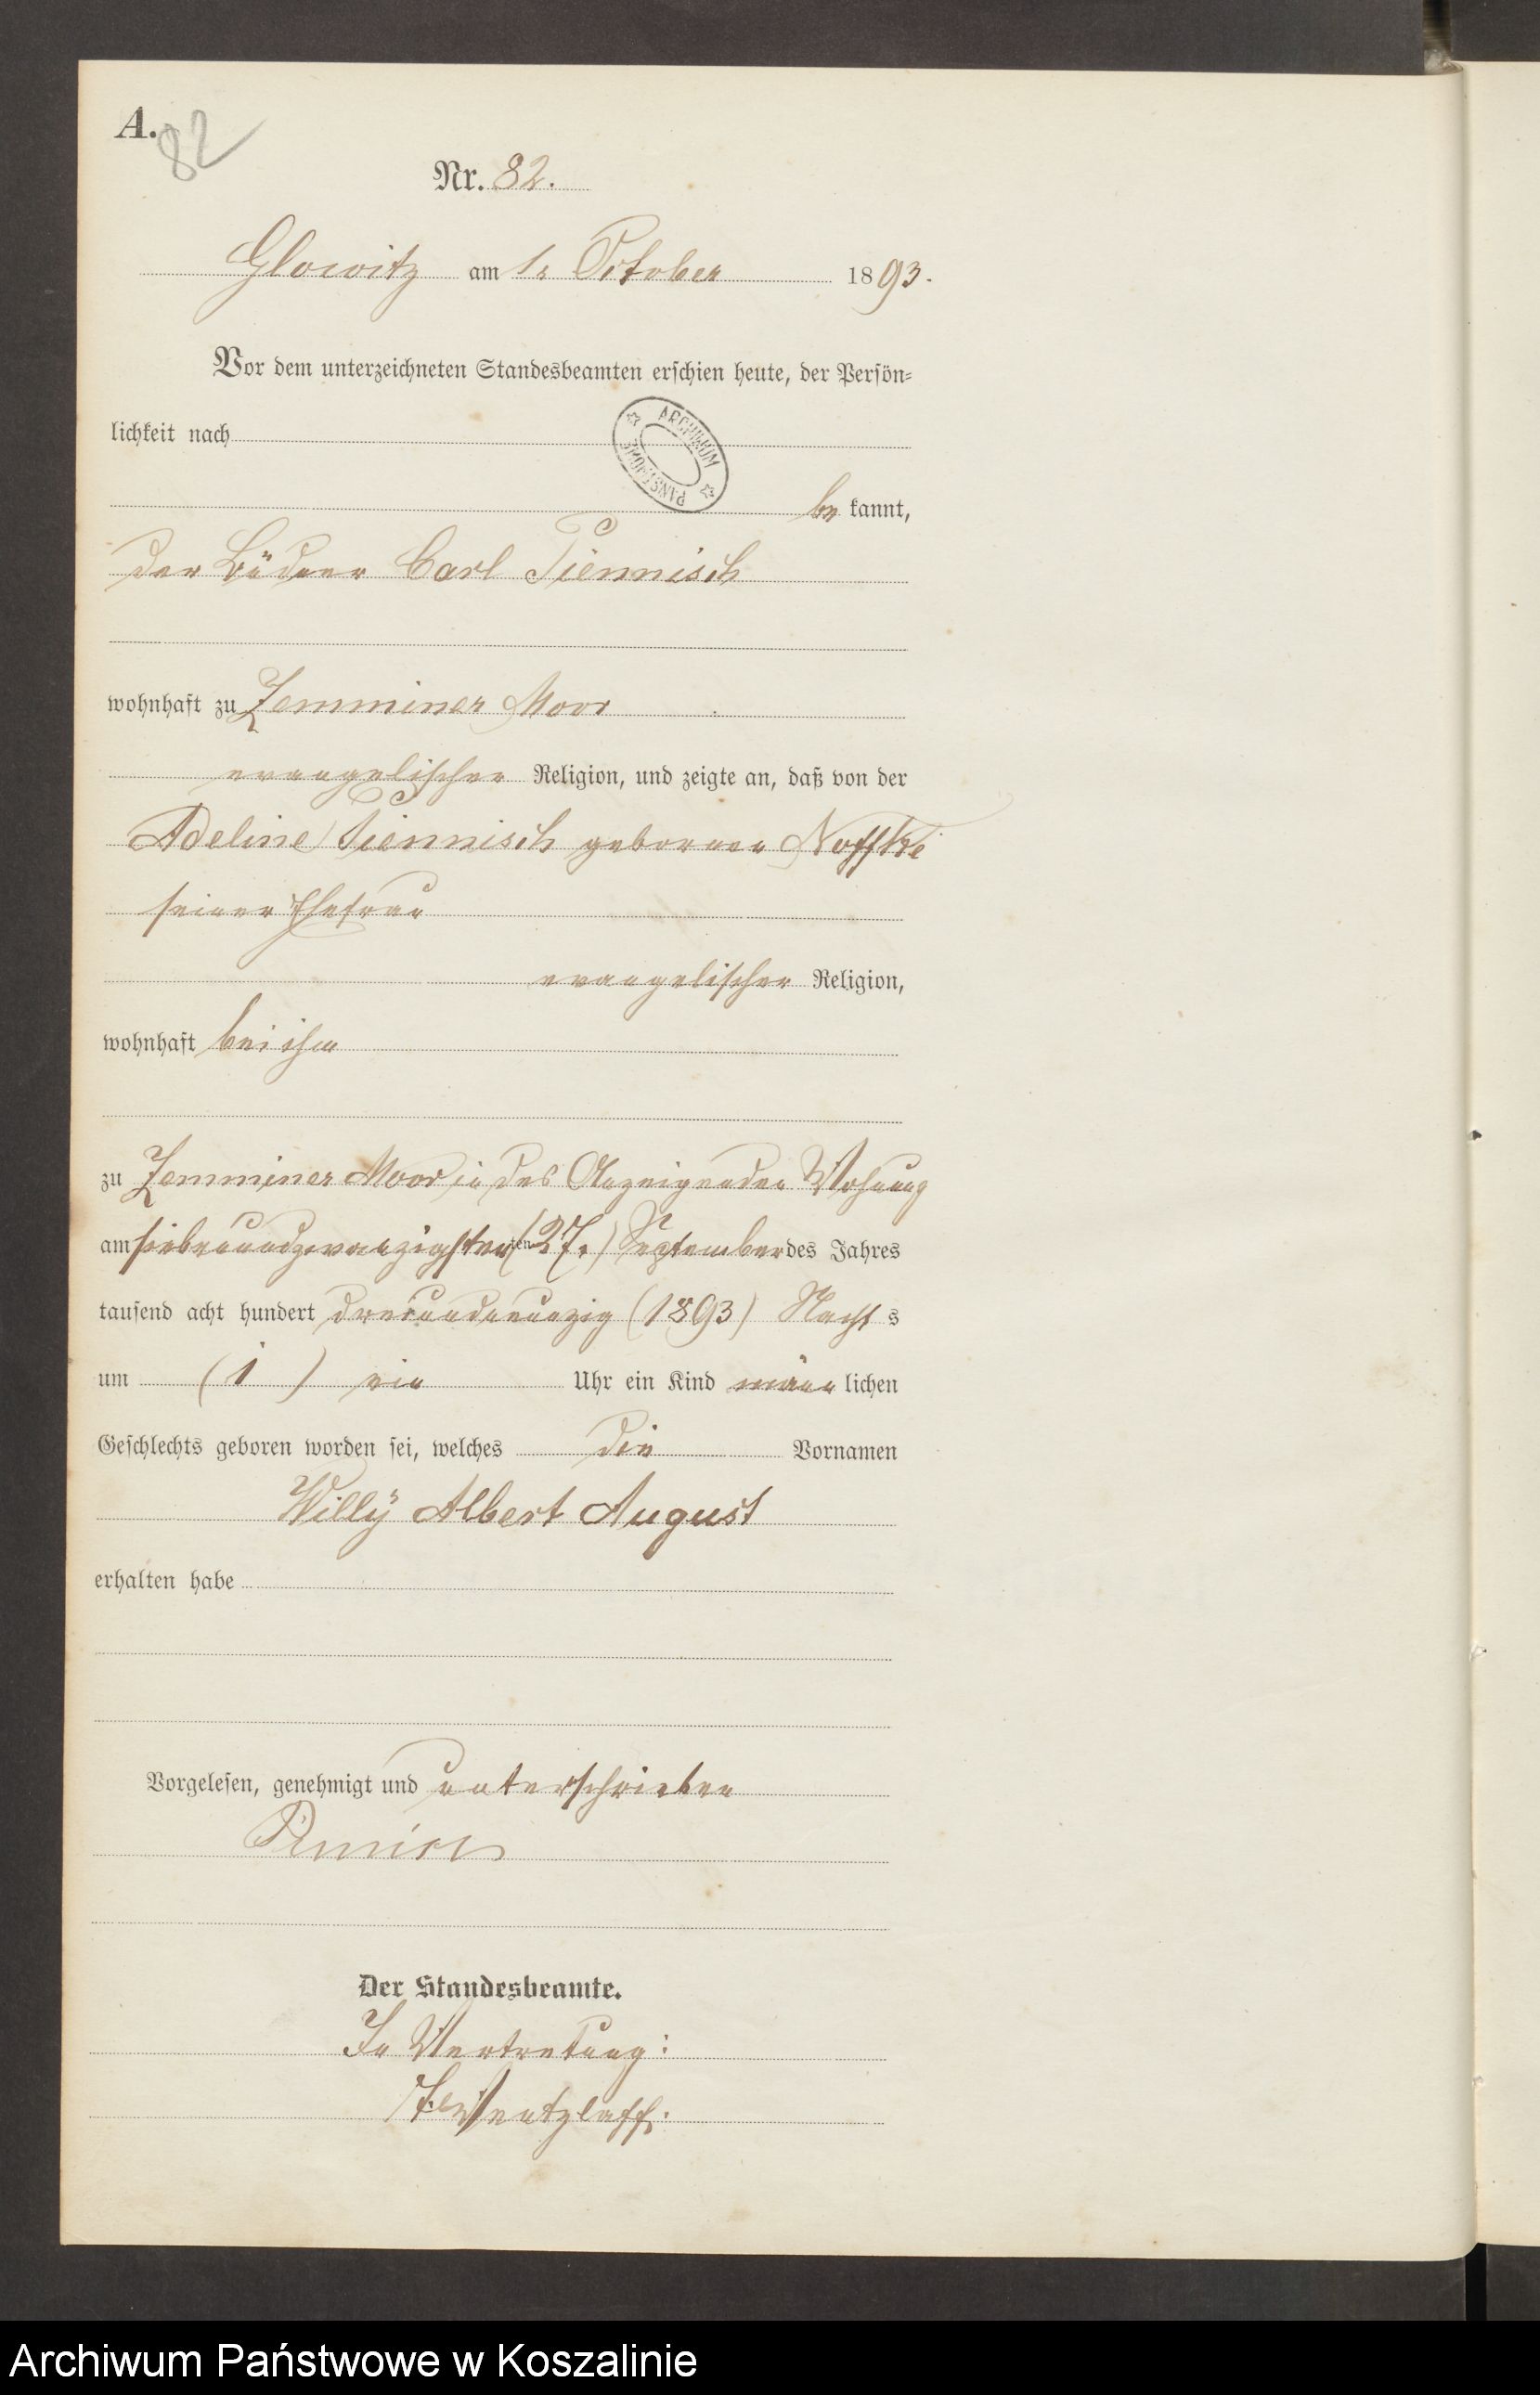 A.
82
Nr. 82.
Glowitz am 1. October 1893.
Vor dem unterzeichneten Standesbeamten erschien heute, der Persön-
lichkeit nach
ARCHIWUM PAŃSTWOWE
be kannt,
der Büdner Carl Piennisch
wohnhaft zu Zemminer Moor
evangelischer Religion, und zeigte an, daß von der
Adeline Piennisch geborenen Noffke
seiner Ehefrau
evangelischer Religion,
wohnhaft bei ihm
zu Zemminer Moor in des Anzeigenden Wohnung
am siebenundzwanzigsten ten (27.) September des Jahres
tausend acht hundert dreiundneunzig (1893) Nacht s
um (1) ein Uhr ein Kind männ lichen
Geschlechts geboren worden sei, welches die Vornamen
Willÿ Albert August
erhalten habe
Vorgelesen, genehmigt und unterschrieben
Der Standesbeamte.
In Vertretung:
Wentzlaff.
Archiwum Państwowe w Koszalinie